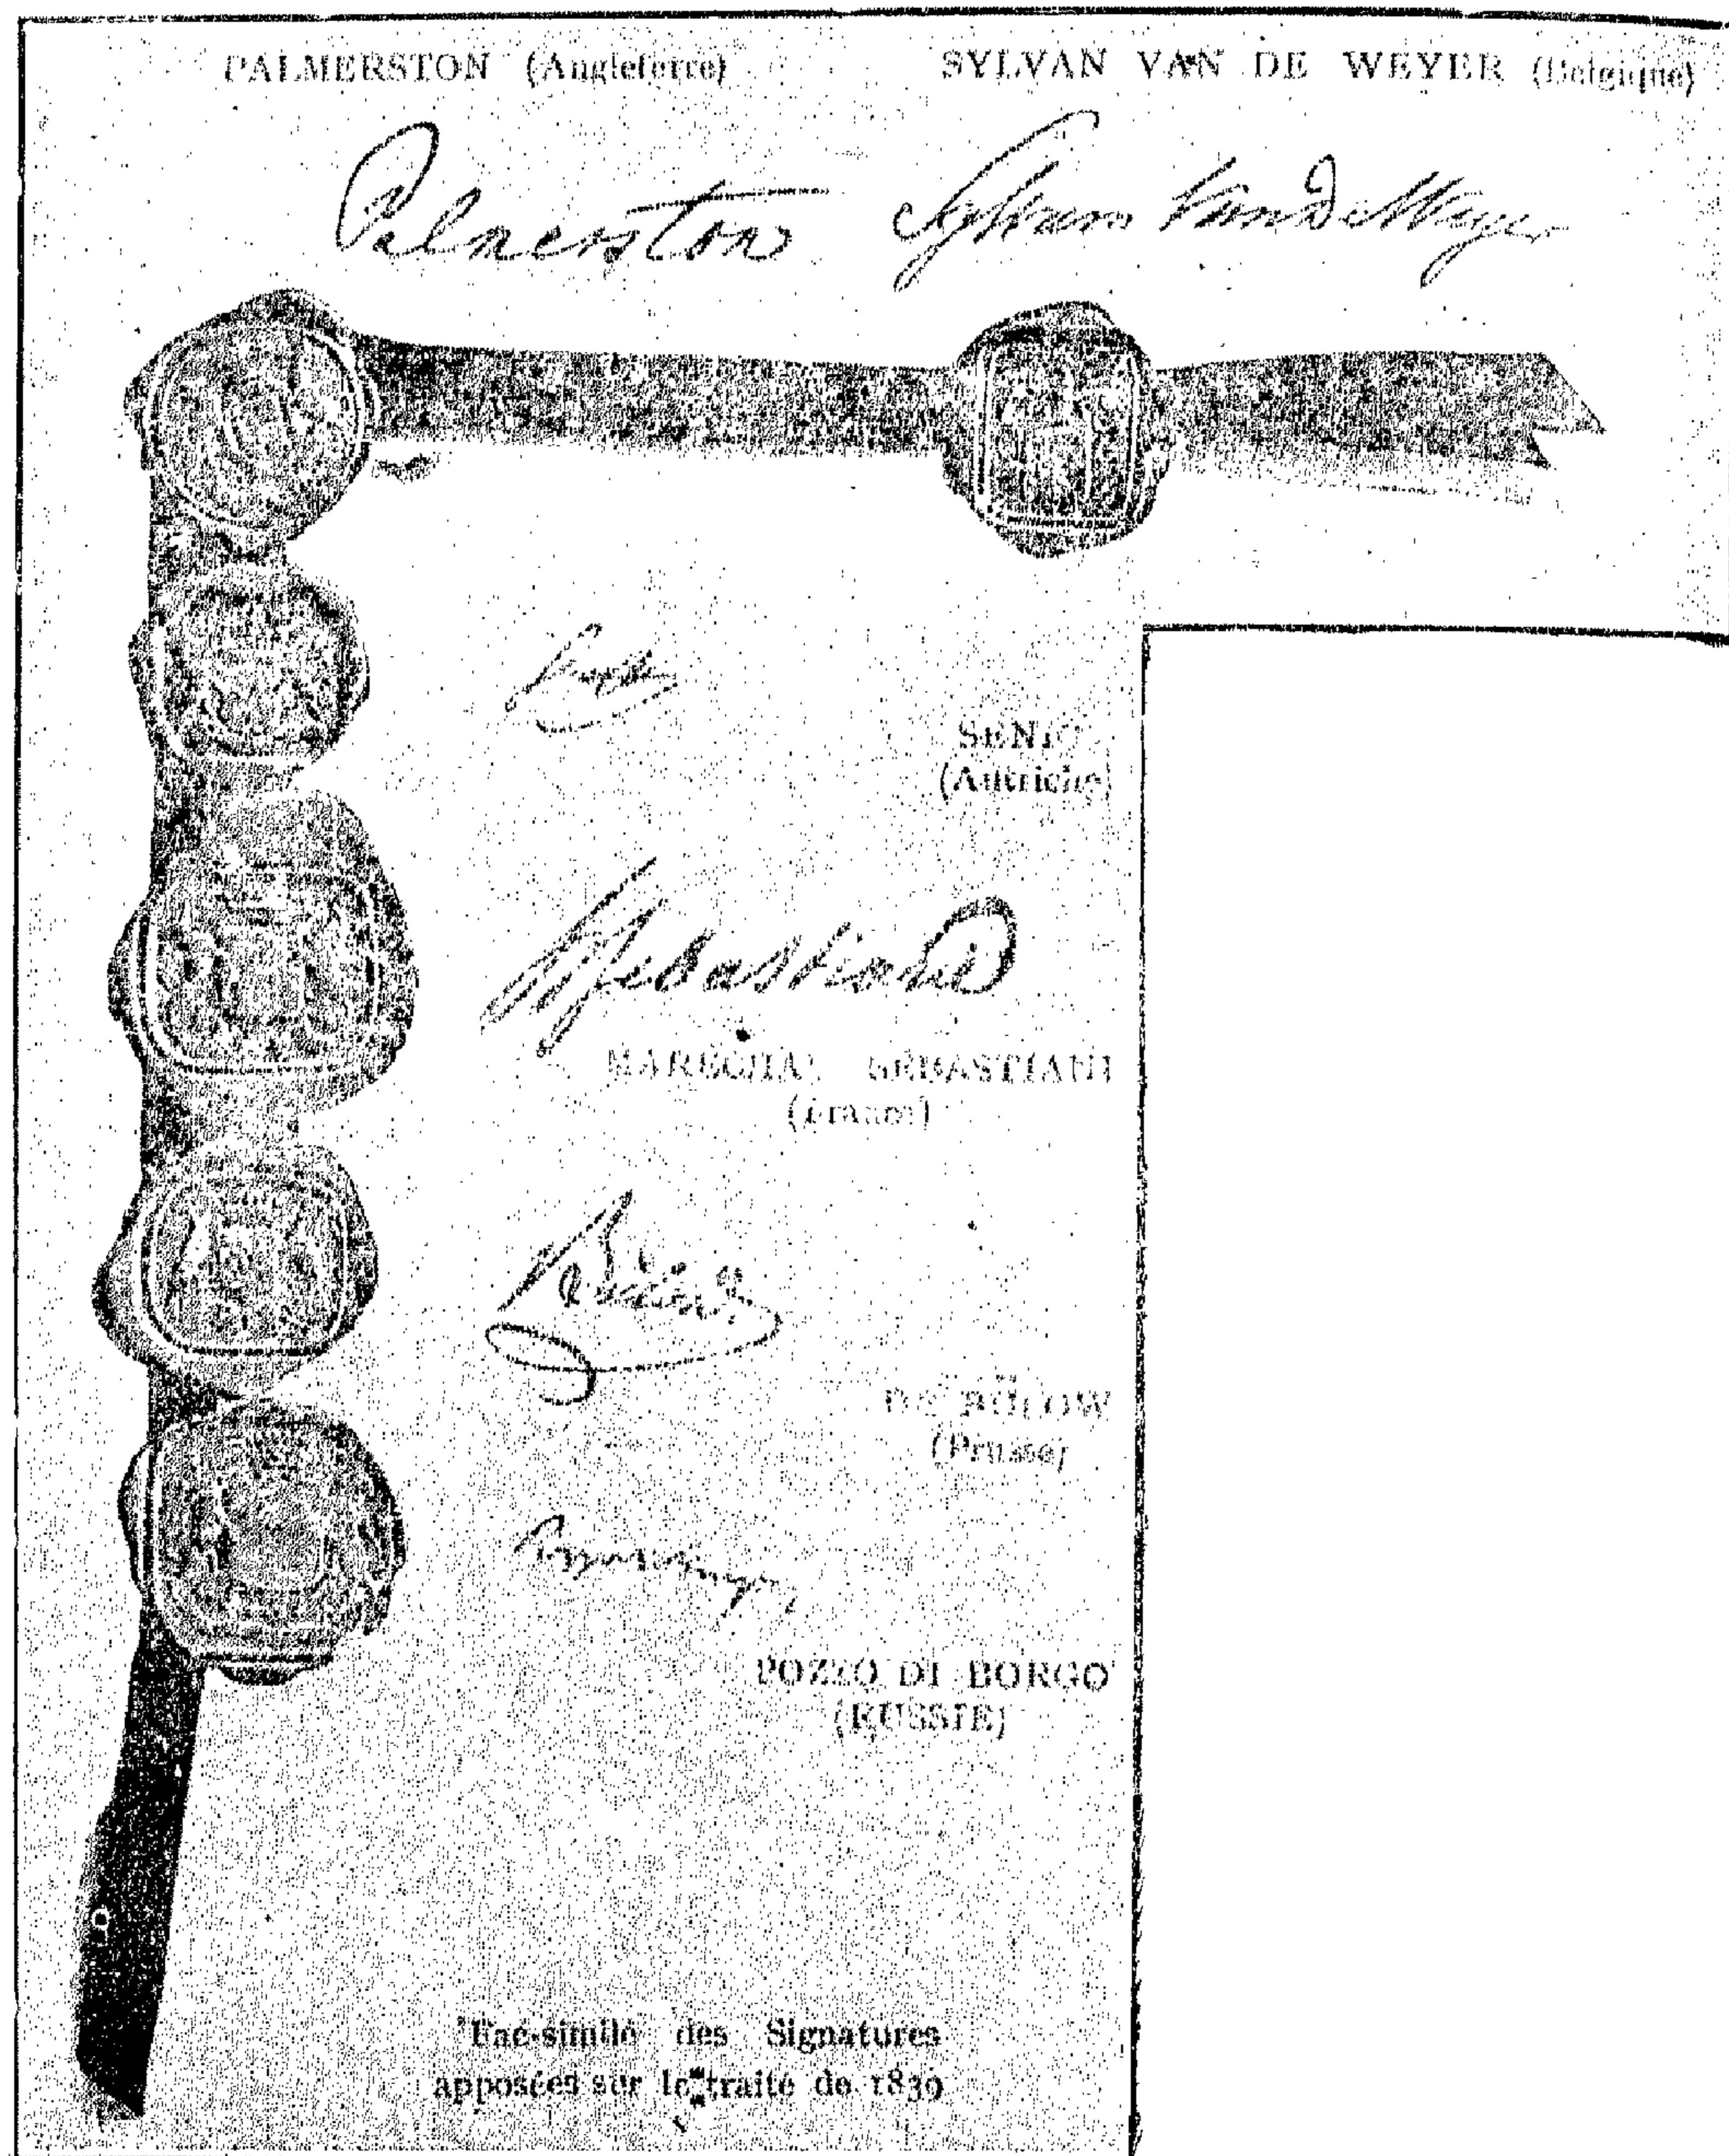 PALMERSTON (Angleterre)
SYLVAN VAN DE WEYER (Belgique)
Palmerston
Sylvain Van de Weyer
(Autriche)
Sebastiani
MARECHAL SEBASTIANI
(France)
Bülow
DE BÜLOW
(Prusse)
POZZO DI BORGO
(RUSSIE)
Fac-similé des Signatures
apposées sur le traité de 1839